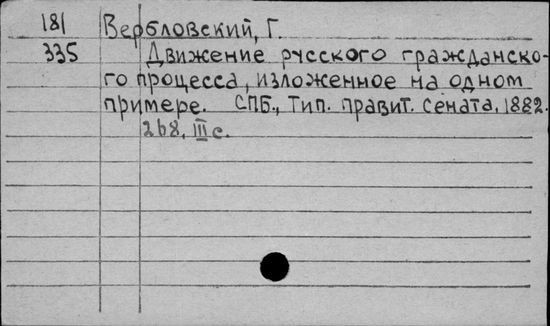 181 Вербловский, Г.
335 Движение русского гражданско-
го процесса, изложенное на одном
примере. СПБ., Тип. правит. сената, 1882.
268, III с.